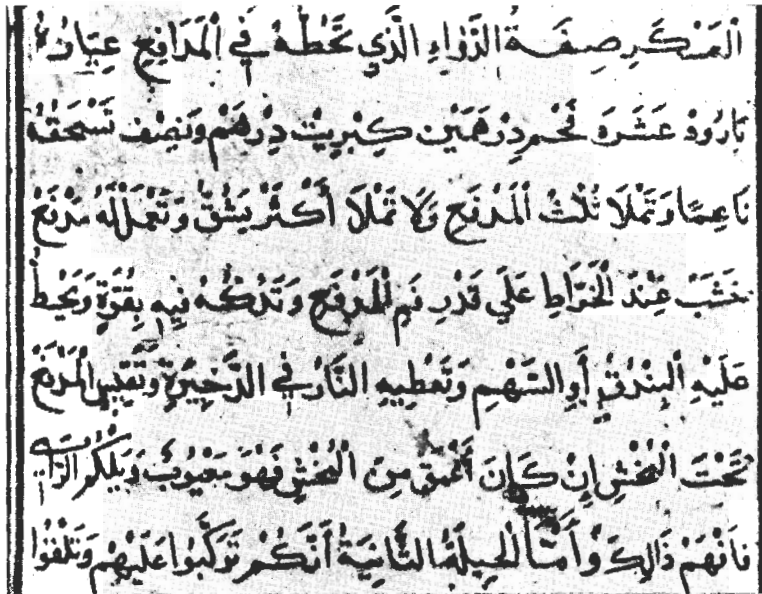 العسكر صفة الدواء الذي تحطه في المدافع عيانه
بارود عشرة فحم درهمين كبريت درهم ونصف تسحقه
ناعما وتملا ثلث المدفع ولا تملا أكثر يشق وتعمل له مدفع
خشب عند الخراط على قدر فم المدفع وتدكه فيه بقوة وتحط
عليه البندق أو السهم وتعطيه النار في الذخيرة المدفع
تحت البخش إن كان أعمق من البخش فهو معيوب
فافهم ذالك وأما الحيلة الثانية أنكم تركبوا عليهم وتلفوا